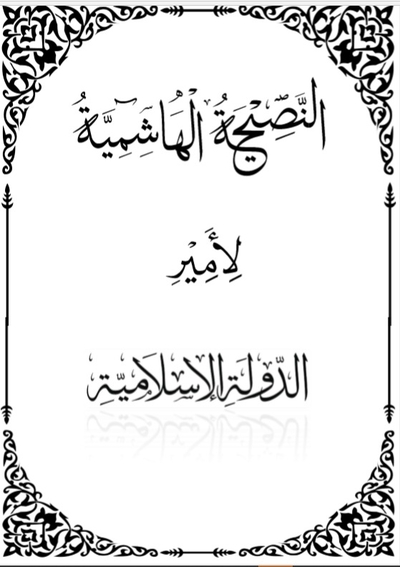 النَّصِيْحَةُ الْهَاشِمِيَّةُ
لِأَمِيْرِ
الدَّوْلَةِ الإِسْلَامِيَّةِ